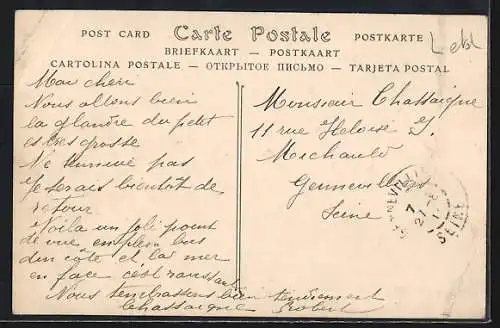 POST CARD Carte Postale POSTKARTE
BRIEFKAART — POSTKAART
CARTOLINA POSTALE — ОТКРЫТОЕ ПИСЬМО — TARJETA POSTAL
Mon cheri
Nous allons bien
la glandre du petit
est tres grosse
Ne tennuie pas
je serais bientôt de
retour
Voila un joli point
de vue en plein bas
dun côté et la mer
en face c'est ravissant
Nous tembrassons bien tendrement
Chassaigne Robert
Monsieur Chassaigne
11 rue Heloise
Michault
Gennevilliers
Seine
SEINE